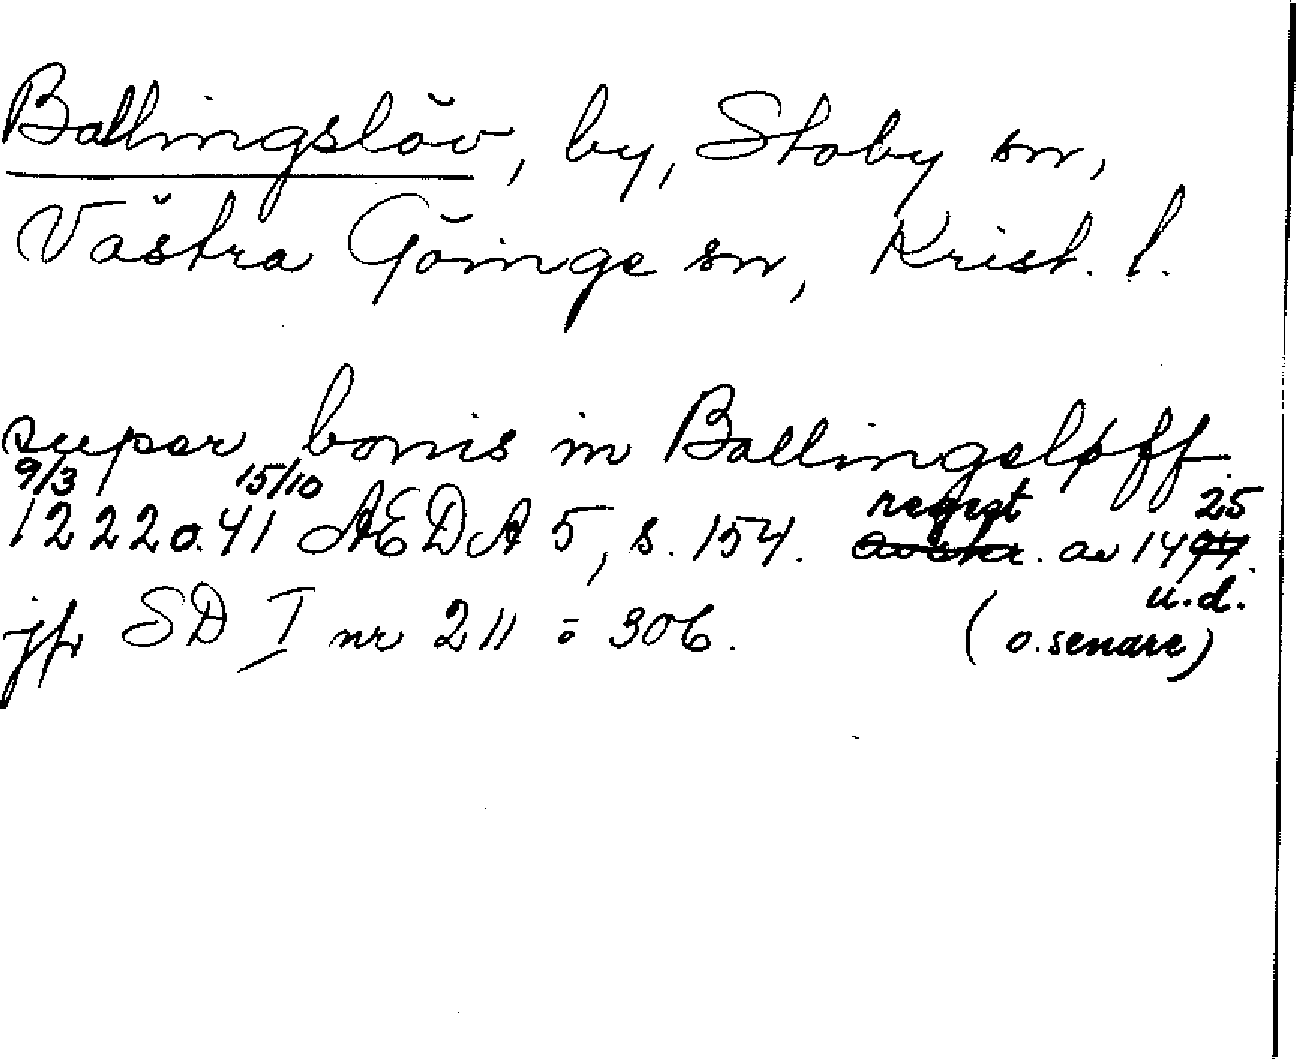 Ballingslöv, by, Stoby sn,
Västra Göinge sn, Krist. l.
super bonis in Ballingsløff
9/3 15/10 regest 25
1222 o. 41 AEDA 5, s. 154. av 1494.
u.d.
jfr SD I nr 211 o 306. (o. senare)